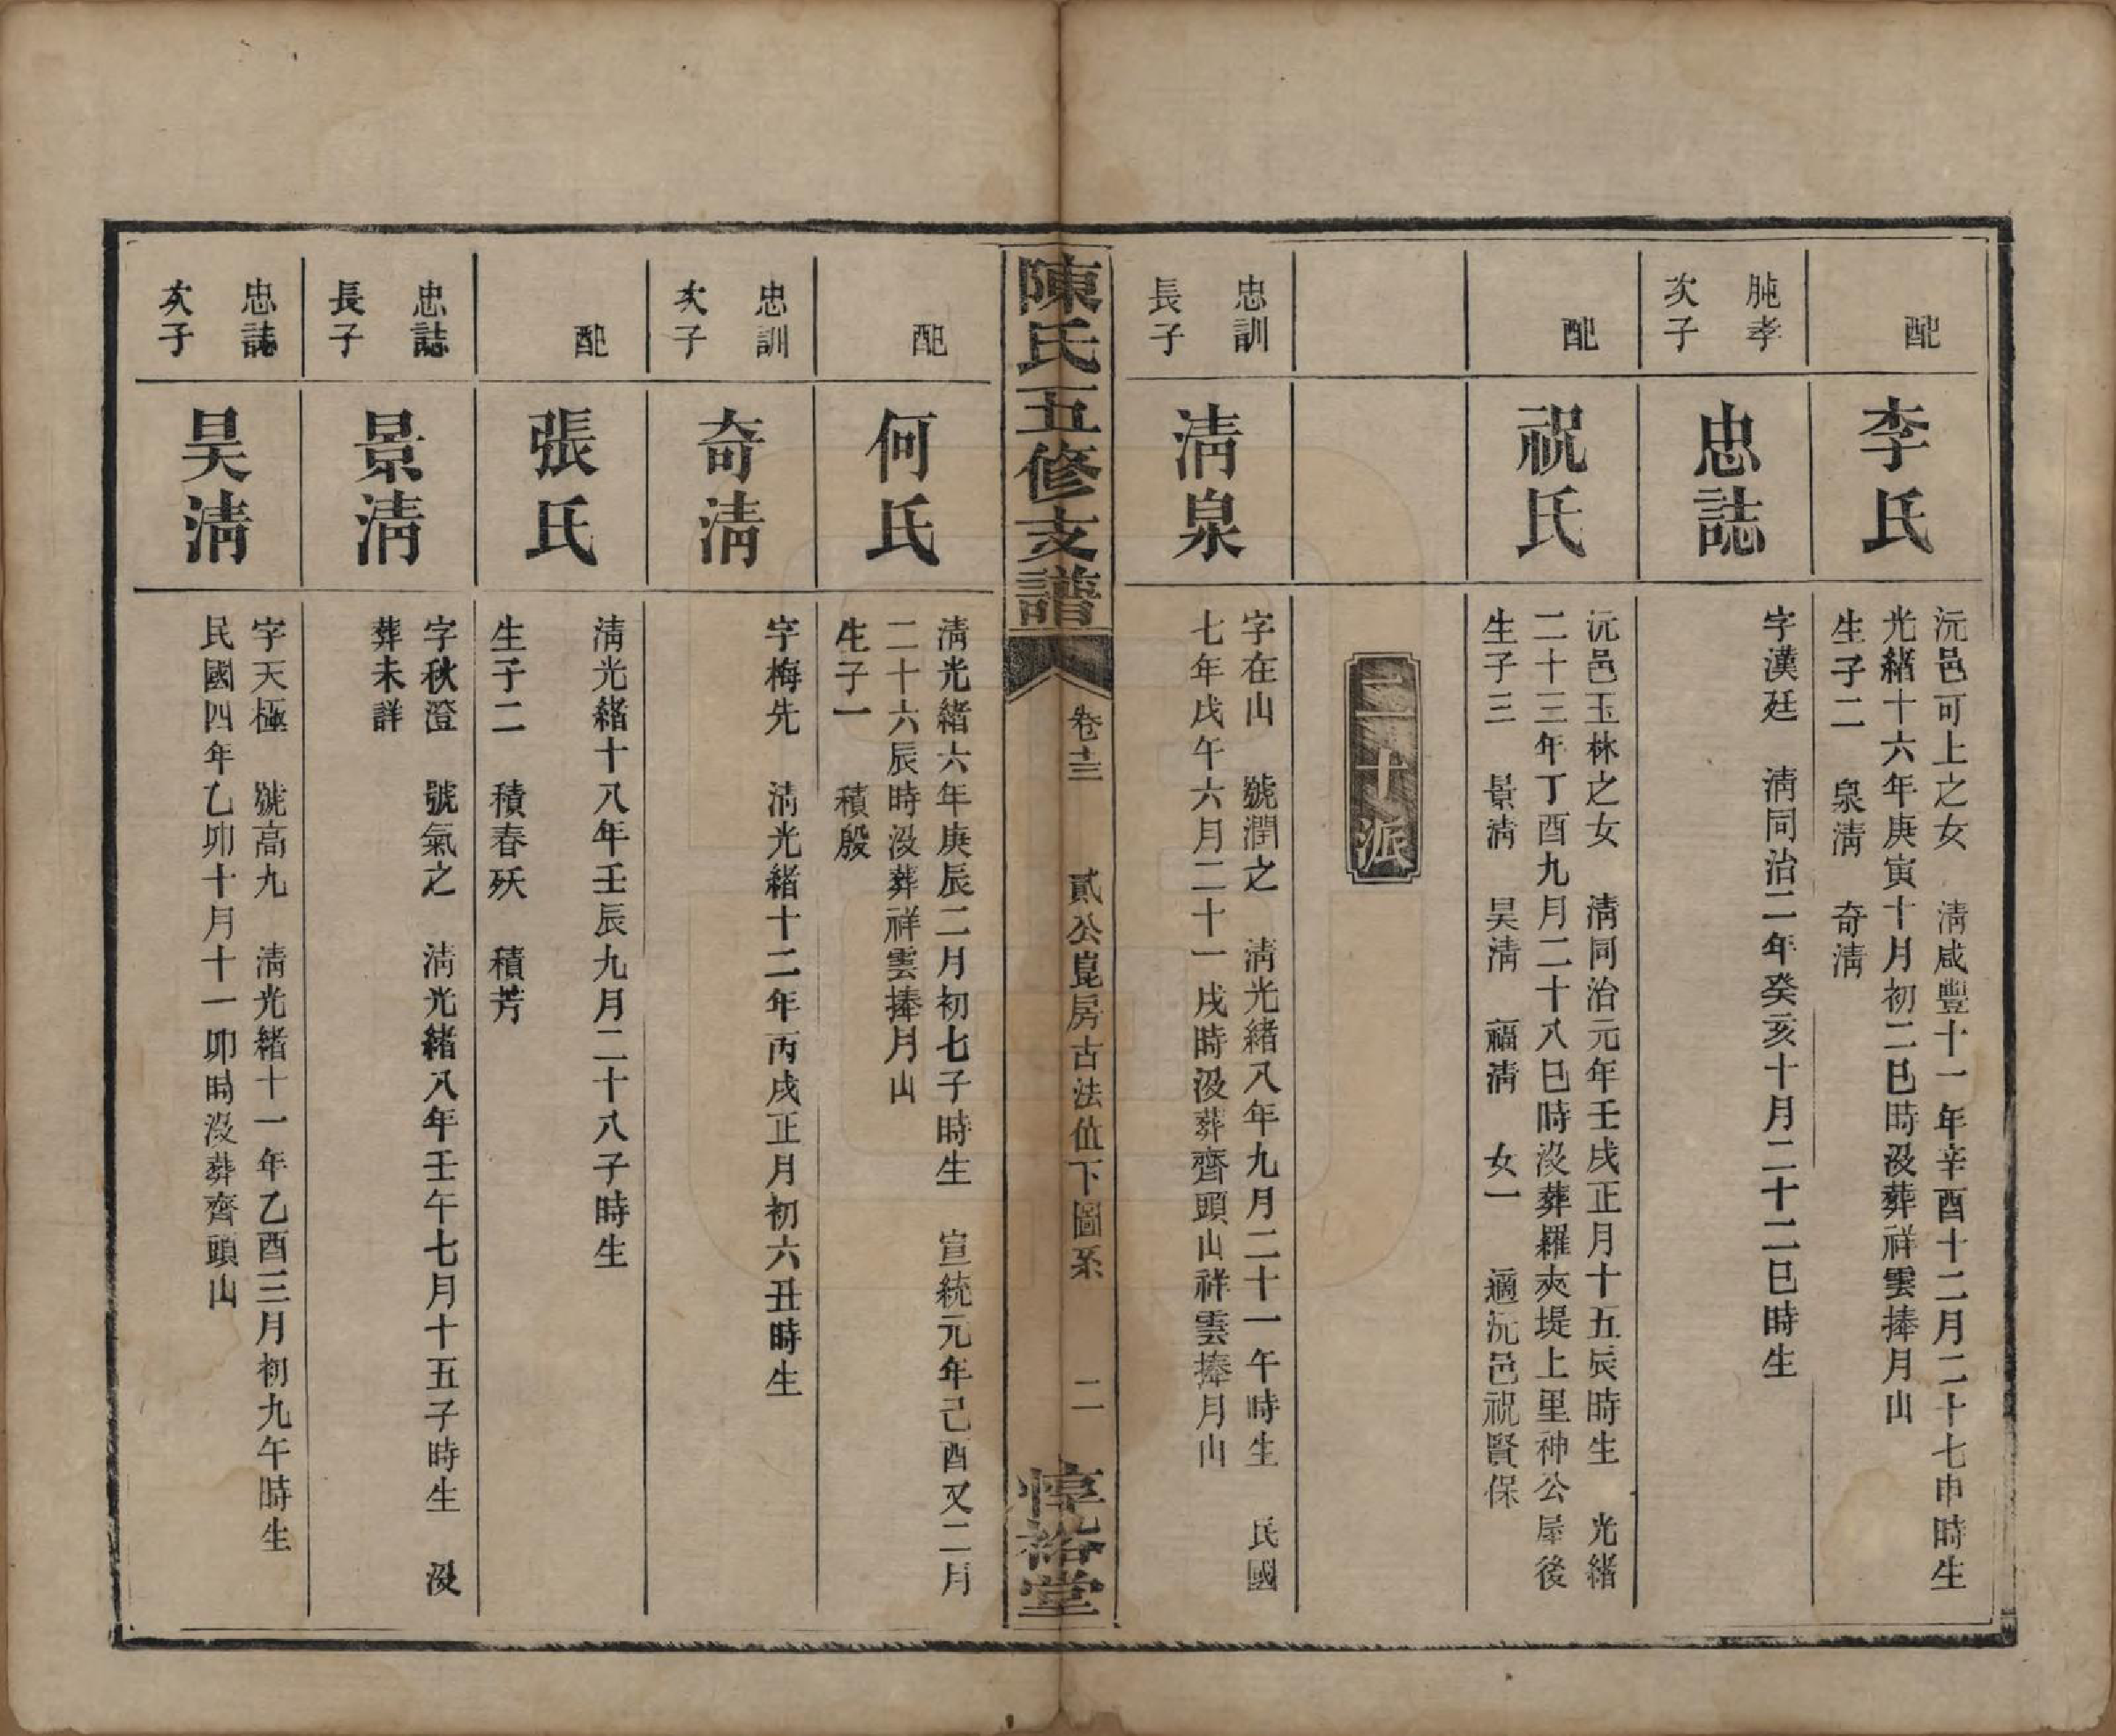 配
李氏
沅邑可上之女　淸咸豐十一年辛酉十二月二十七申時生
光緒十六年庚寅十月初二巳時沒葬祥雲捧月山
生子二　泉淸　奇淸
肫孝
次子
忠誌
字漢廷　淸同治二年癸亥十月二十二巳時生
配
祝氏
沅邑玉林之女　淸同治元年壬戌正月十五辰時生　光緒
二十三年丁酉九月二十八巳時沒葬羅夾堤上里神公屋後
生子三　景淸　昊淸　福淸　女一　適沅邑祝賢保
二十派
忠訓
長子
淸泉
字在山　號潤之　淸光緒八年九月二十一午時生　民國
七年戊午六月二十一戌時沒葬齊頭山祥雲捧月山
陳氏五修支譜
卷十三　貳公崑房古法值下圖系　二
惇裕堂
配
何氏
淸光緒六年庚辰二月初七子時生　宣統元年己酉又二月
二十六辰時沒葬祥雲捧月山
生子一　積殷
忠訓
次子
奇淸
字梅先　淸光緒十二年丙戌正月初六丑時生
配
張氏
淸光緒十八年壬辰九月二十八子時生
生子二　積春殀　積芳
忠誌
長子
景淸
字秋澄　號氣之　淸光緒八年壬午七月十五子時生　沒
葬未詳
忠誌
次子
昊淸
字天極　號高九　淸光緒十一年乙酉三月初九午時生
民國四年乙卯十月十一卯時沒葬齊頭山